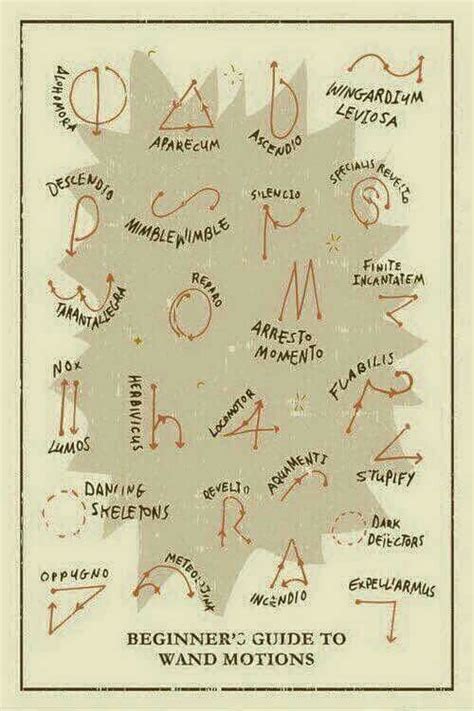 ALOHOMORA
APARECUM
ASCENDIO
WINGARDIUM
LEVIOSA
DESCENDIO
MIMBLEWIMBLE
SILENCIO
SPECIALIS REVELIO
TARANTALLEGRA
REPARO
ARRESTO
MOMENTO
FINITE
INCANTATEM
NOX
LUMOS
HERBIVICUS
LOCOMOTOR
FUABILIS
STUPIFY
DANCING
SKELETONS
REVELIO
AQUAMENTI
DARK
DETECTORS
OPPUGNO
METEOLOJINX
INCENDIO
EXPELLIARMUS
BEGINNER'S GUIDE TO
WAND MOTIONS